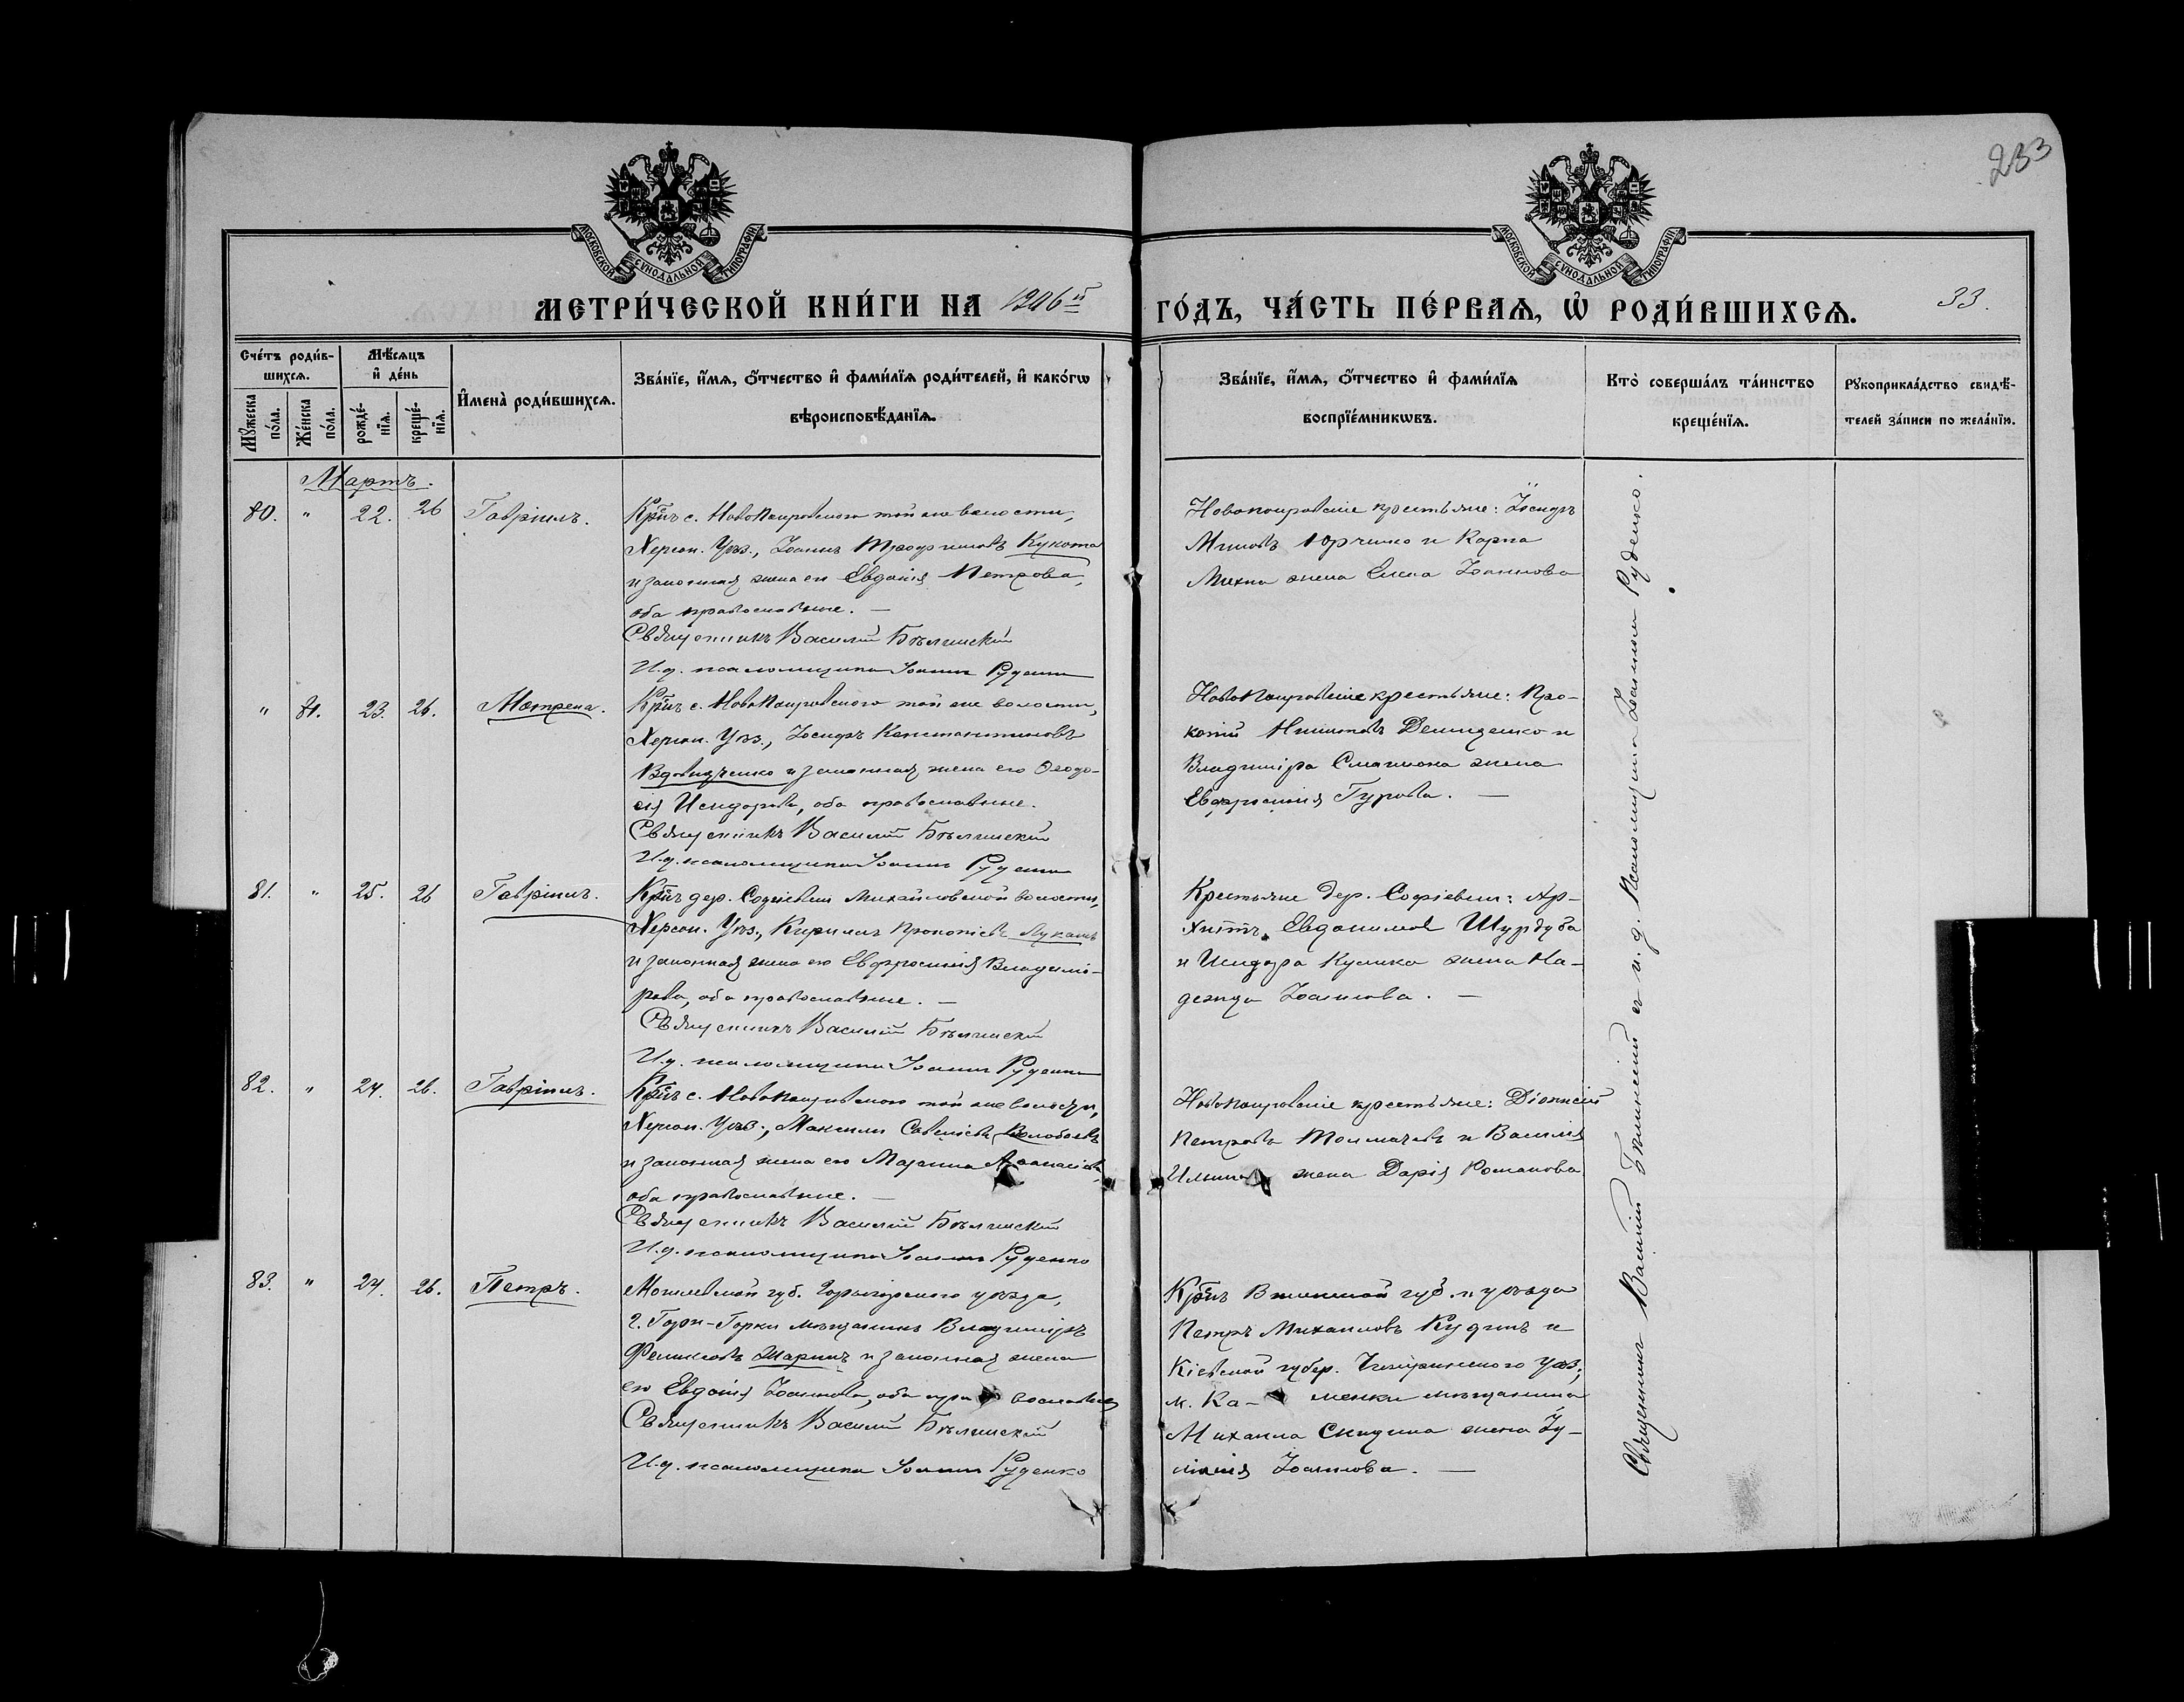 233
МОСКОВСКОЙ СѴНОДАЛЬНОЙ ТИПОГРАФІИ
МОСКОВСКОЙ СѴНОДАЛЬНОЙ ТИПОГРАФІИ
МЕТРИ́ЧЕСКОЙ КНИ́ГИ НА 1906й ГО́ДЪ, ЧА́СТЬ ПЕ́РВАѦ, Ѡ҆ РОДИ́ВШИХСѦ. 33.
Сче́тъ роди́в-
шихсѧ.
Мꙋ́жеска по́ла.
Же́нска по́ла.
Мѣ́сѧцъ
и҆ де́нь
рожде́-
нїѧ.
креще́-
нїѧ.
И҆мена̀ роди́вшихсѧ.
Зва́нїе, и҆́мѧ, ѻ҆́тчество и҆ фами́лїѧ роди́телей, и҆ како́гѡ
вѣроисповѣ́данїѧ.
Зва́нїе, и҆́мѧ, ѻ҆́тчество и҆ фами́лїѧ
воспрїе́мникѡвъ.
Кто̀ соверша́лъ та́инство
креще́нїѧ.
Рꙋкоприкла́дство свидѣ́-
телей за́писи по жела́нїю.
Мартъ.
80. " 22. 26 Гавріилъ.
Крнъ с. Новопокровскаго той же волости,
Херсон. Уѣз., Іоаннъ Трофимовъ Кукота
и законная жена его Евдокія Петрова,
оба православные. —
Священникъ Василій Бѣлинскій
И.д. псаломщика Іоаннъ Руденко
Новопокровскіе крестьяне: Іосифъ
Миновъ Юрченко и Карпа
Михна жена Елена Іоаннова
" 81. 23. 26. Мотрена.
Крнъ с. Новопокровскаго той же волости,
Херсон. Уѣз., Іосифъ Константиновъ
Вдовиченко и законная жена его Ѳеодо-
сія Исидорова, оба православные.
Священникъ Василій Бѣлинскій
И.д. псаломщика Іоаннъ Руденко
Новопокровскіе крестьяне: Про-
копій Никитовъ Демиденко и
Владиміра Смагиона жена
Евфросинія Гурова. —
81. " 25. 26 Гавріилъ.
Крнъ дер. Софіевки Михайловской волости,
Херсон. Уѣз., Кириллъ Прокопіевъ Лукашъ
и законная жена его Евфросинія Владимі-
рова, оба православные. —
Священникъ Василій Бѣлинскій
И.д. псаломщика Іоаннъ Руденко
Крестьяне дер. Софіевки: Ар-
хиппъ Евдокимовъ Шурдуба
и Исидора Кулика жена На-
дежда Іоаннова. —
82. " 24. 26. Гавріилъ.
Крнъ с. Новопокровскаго той же волости,
Херсон. Уѣз., Максимъ Савеліевъ Волобоевъ
и законная жена его Маріанна Аѳанасіева,
оба православные. —
Священникъ Василій Бѣлинскій
И.д. псаломщика Іоаннъ Руденко
Новопокровскіе крестьяне: Діонисій
Петровъ Толмачевъ и Василія
Ильина жена Дарія Романова
83. " 24. 26. Петръ.
Могилевской губ. Горыгорскаго уѣзда,
г. Горы-Горки мѣщанинъ Владиміръ
Феликсовъ Шарпиъ и законная жена
его Евдокія Іоаннова, оба православные
Священникъ Василій Бѣлинскій
И.д. псаломщика Іоаннъ Руденко
Крнъ Виленской губ. и уѣзда
Петръ Михаиловъ Кудинъ и
Кіевской губер. Чигиринскаго Уѣз.,
м. Ка- менки мѣщанина
Михаила Скидина жена Іу-
ліанія Іоаннова. —
Священникъ Василій Бѣлинскій съ и. д. Псаломщика Іоанномъ Руденко.